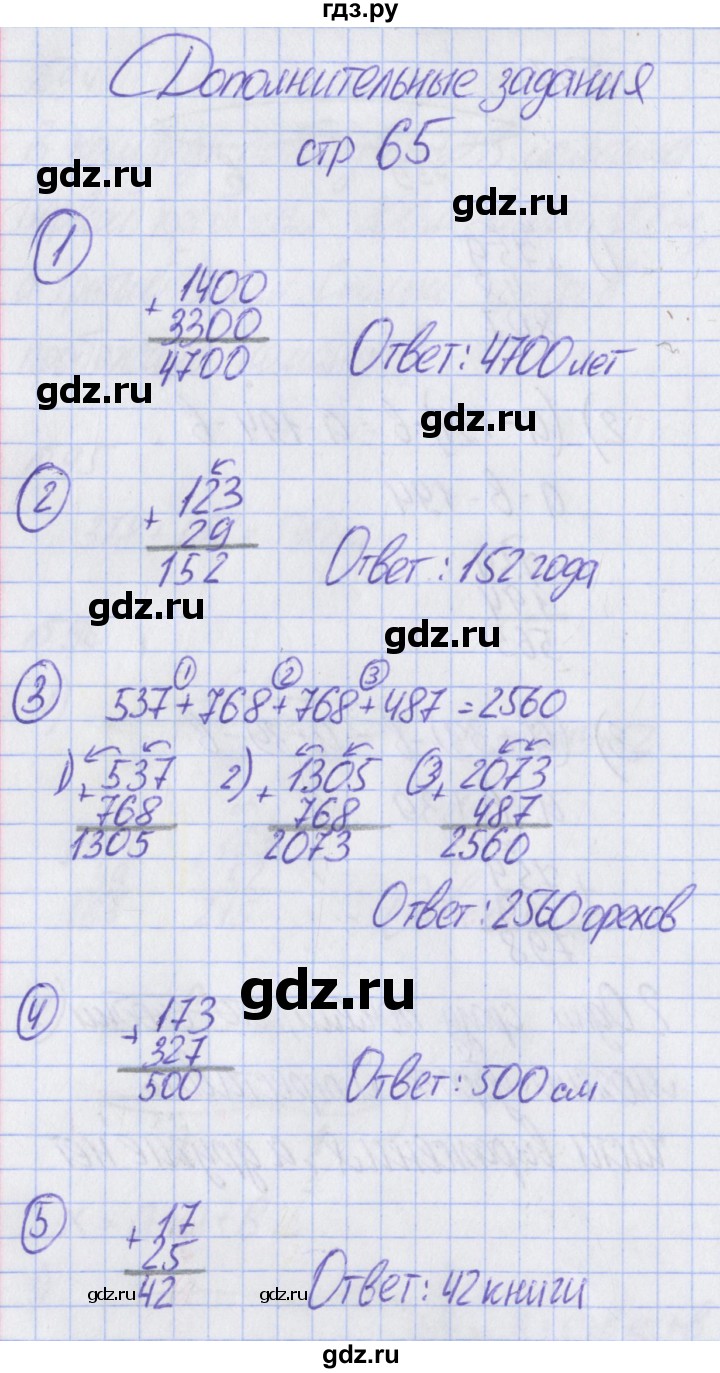 гдз.ру
Дополнительные задания
стр 65
gdz.ru
gdz.ru
1
+ 1400
3300
4700
Ответ: 4700 лет
gdz.ru
gdz.ru
2
+ 123
29
152
Ответ: 152 года
gdz.ru
gdz.ru
3
1 2 3
537 + 768 + 768 + 487 = 2560
1) + 537
768
1305
2) + 1305
768
2073
3 + 2073
487
2560
Ответ: 2560 орехов
gdz.ru
4
+ 173
327
500
Ответ: 500 см
5
+ 17
25
42
Ответ: 42 книги
gdz.ru
gdz.ru
gdz.ru